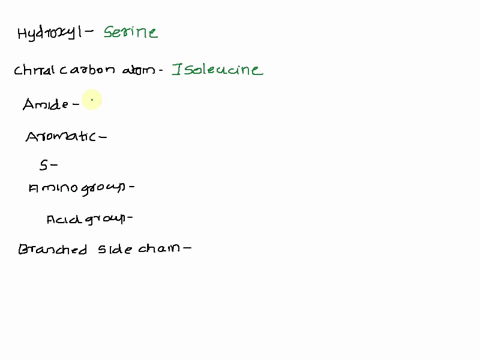 Hydroxyl- Serine
Chiral carbon atom- Isoleucine
Amide-
Aromatic-
S-
Aminogroup-
Acid group-
Branched side chain-